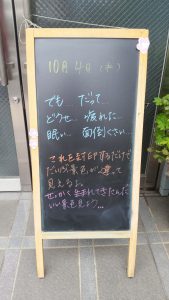 10月4日(水)
でも… だって…
どうせ… 疲れた…
眠い… 面倒くさい…
これをまず印するだけで
だいぶ景色が違って
見えるよ。
せっかく生まれてきたんだ
いい景色見よう…